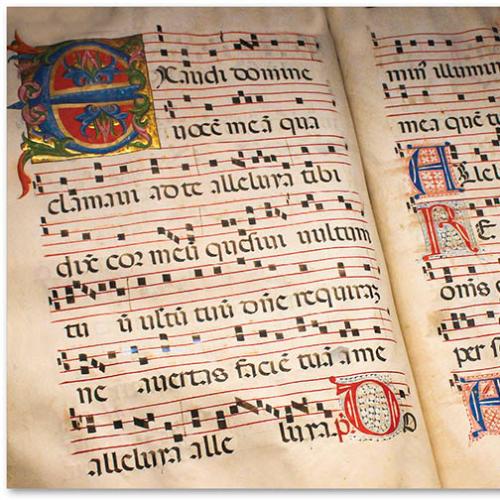 EXaudi domine
vocē meā qua
clamavi ad te alleluya tibi
dix̄ cor meū quesivi vultum
tuū vultū tuū dn̄e requirā
ne avertas faciē tuā a me
alleluya alle luya. p. D
illumin
mea quē ti
Allel
RE
per s
A